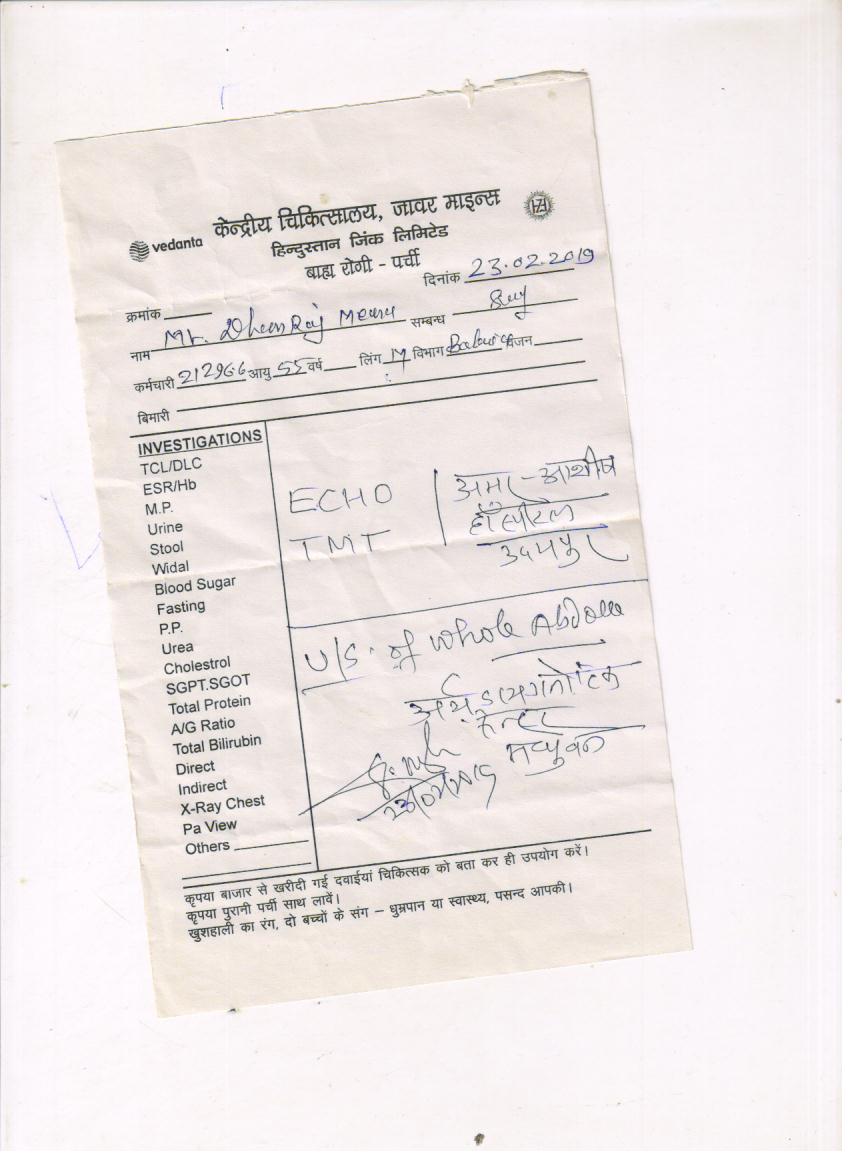 vedanta केन्द्रीय चिकित्सालय, जावर माइन्स
हिन्दुस्तान जिंक लिमिटेड
बाह्य रोगी - पर्ची
दिनांक 23.02.2019
क्रमांक
नाम Mr. DhanRaj Meena सम्बन्ध
कर्मचारी 212966 आयु 55 वर्ष लिंग M विभाग
बिमारी
INVESTIGATIONS
TCL/DLC
ESR/Hb
M.P.
Urine
Stool
Widal
Blood Sugar
Fasting
P.P.
Urea
Cholestrol
SGPT.SGOT
Total Protein
A/G Ratio
Total Bilirubin
Direct
Indirect
X-Ray Chest
Pa View
Others
ECHO
TMT
अमर-आशीष
हॉस्पीटल
उदयपुर
U/S. of Whole Abdome
अर्थ डायग्नोस्टिक
सेन्टर
मधुवन
कृपया बाजार से खरीदी गई दवाईयां चिकित्सक को बता कर ही उपयोग करें।
कृपया पुरानी पर्ची साथ लावें।
खुशहाली का रंग, दो बच्चों के संग – धुम्रपान या स्वास्थ्य, पसन्द आपकी।